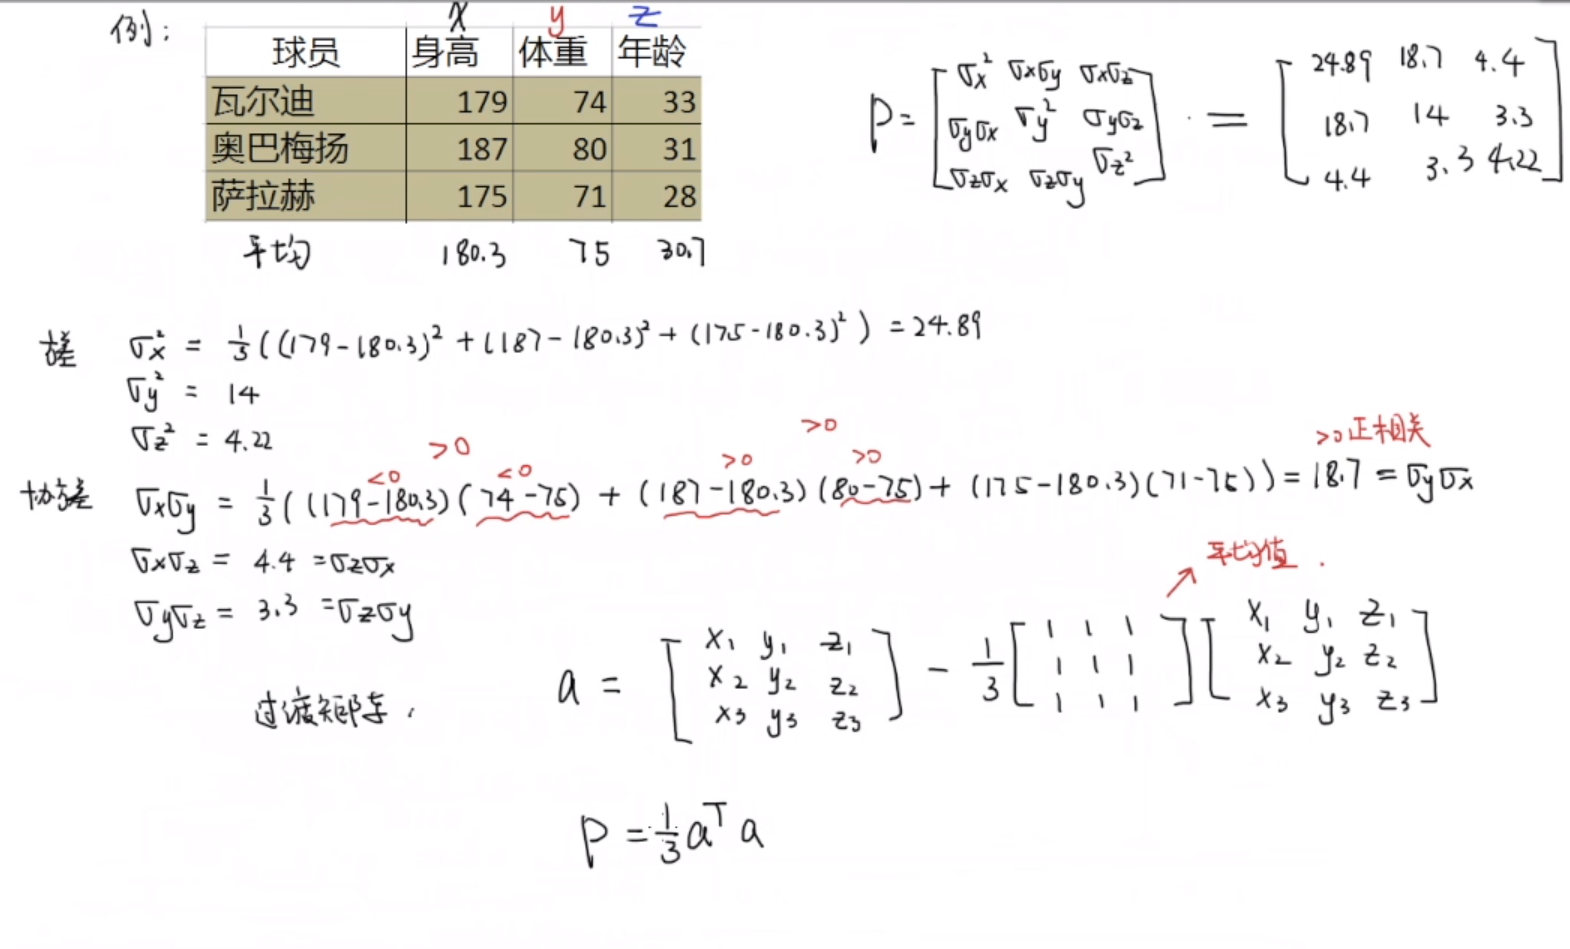 例:
x y z
球员 身高 体重 年龄
瓦尔迪 179 74 33
奥巴梅扬 187 80 31
萨拉赫 175 71 28
平均 180.3 75 30.7
P = [σx² σxσy σxσz
σyσx σy² σyσz
σzσx σzσy σz²]
= [24.89 18.7 4.4
18.7 14 3.3
4.4 3.3 4.22]
方差 σx² = 1/3((179-180.3)² + (187-180.3)² + (175-180.3)²) = 24.89
σy² = 14
σz² = 4.22
>0 >0
<0 <0 >0 >0 >0正相关
协方差 σxσy = 1/3((179-180.3)(74-75) + (187-180.3)(80-75) + (175-180.3)(71-75)) = 18.7 = σyσx
σxσz = 4.4 = σzσx
σyσz = 3.3 = σzσy
平均值.
过渡矩阵.
a = [x₁ y₁ z₁
x₂ y₂ z₂
x₃ y₃ z₃]
- 1/3 [1 1 1
1 1 1
1 1 1]
[x₁ y₁ z₁
x₂ y₂ z₂
x₃ y₃ z₃]
P = 1/3 aᵀ a